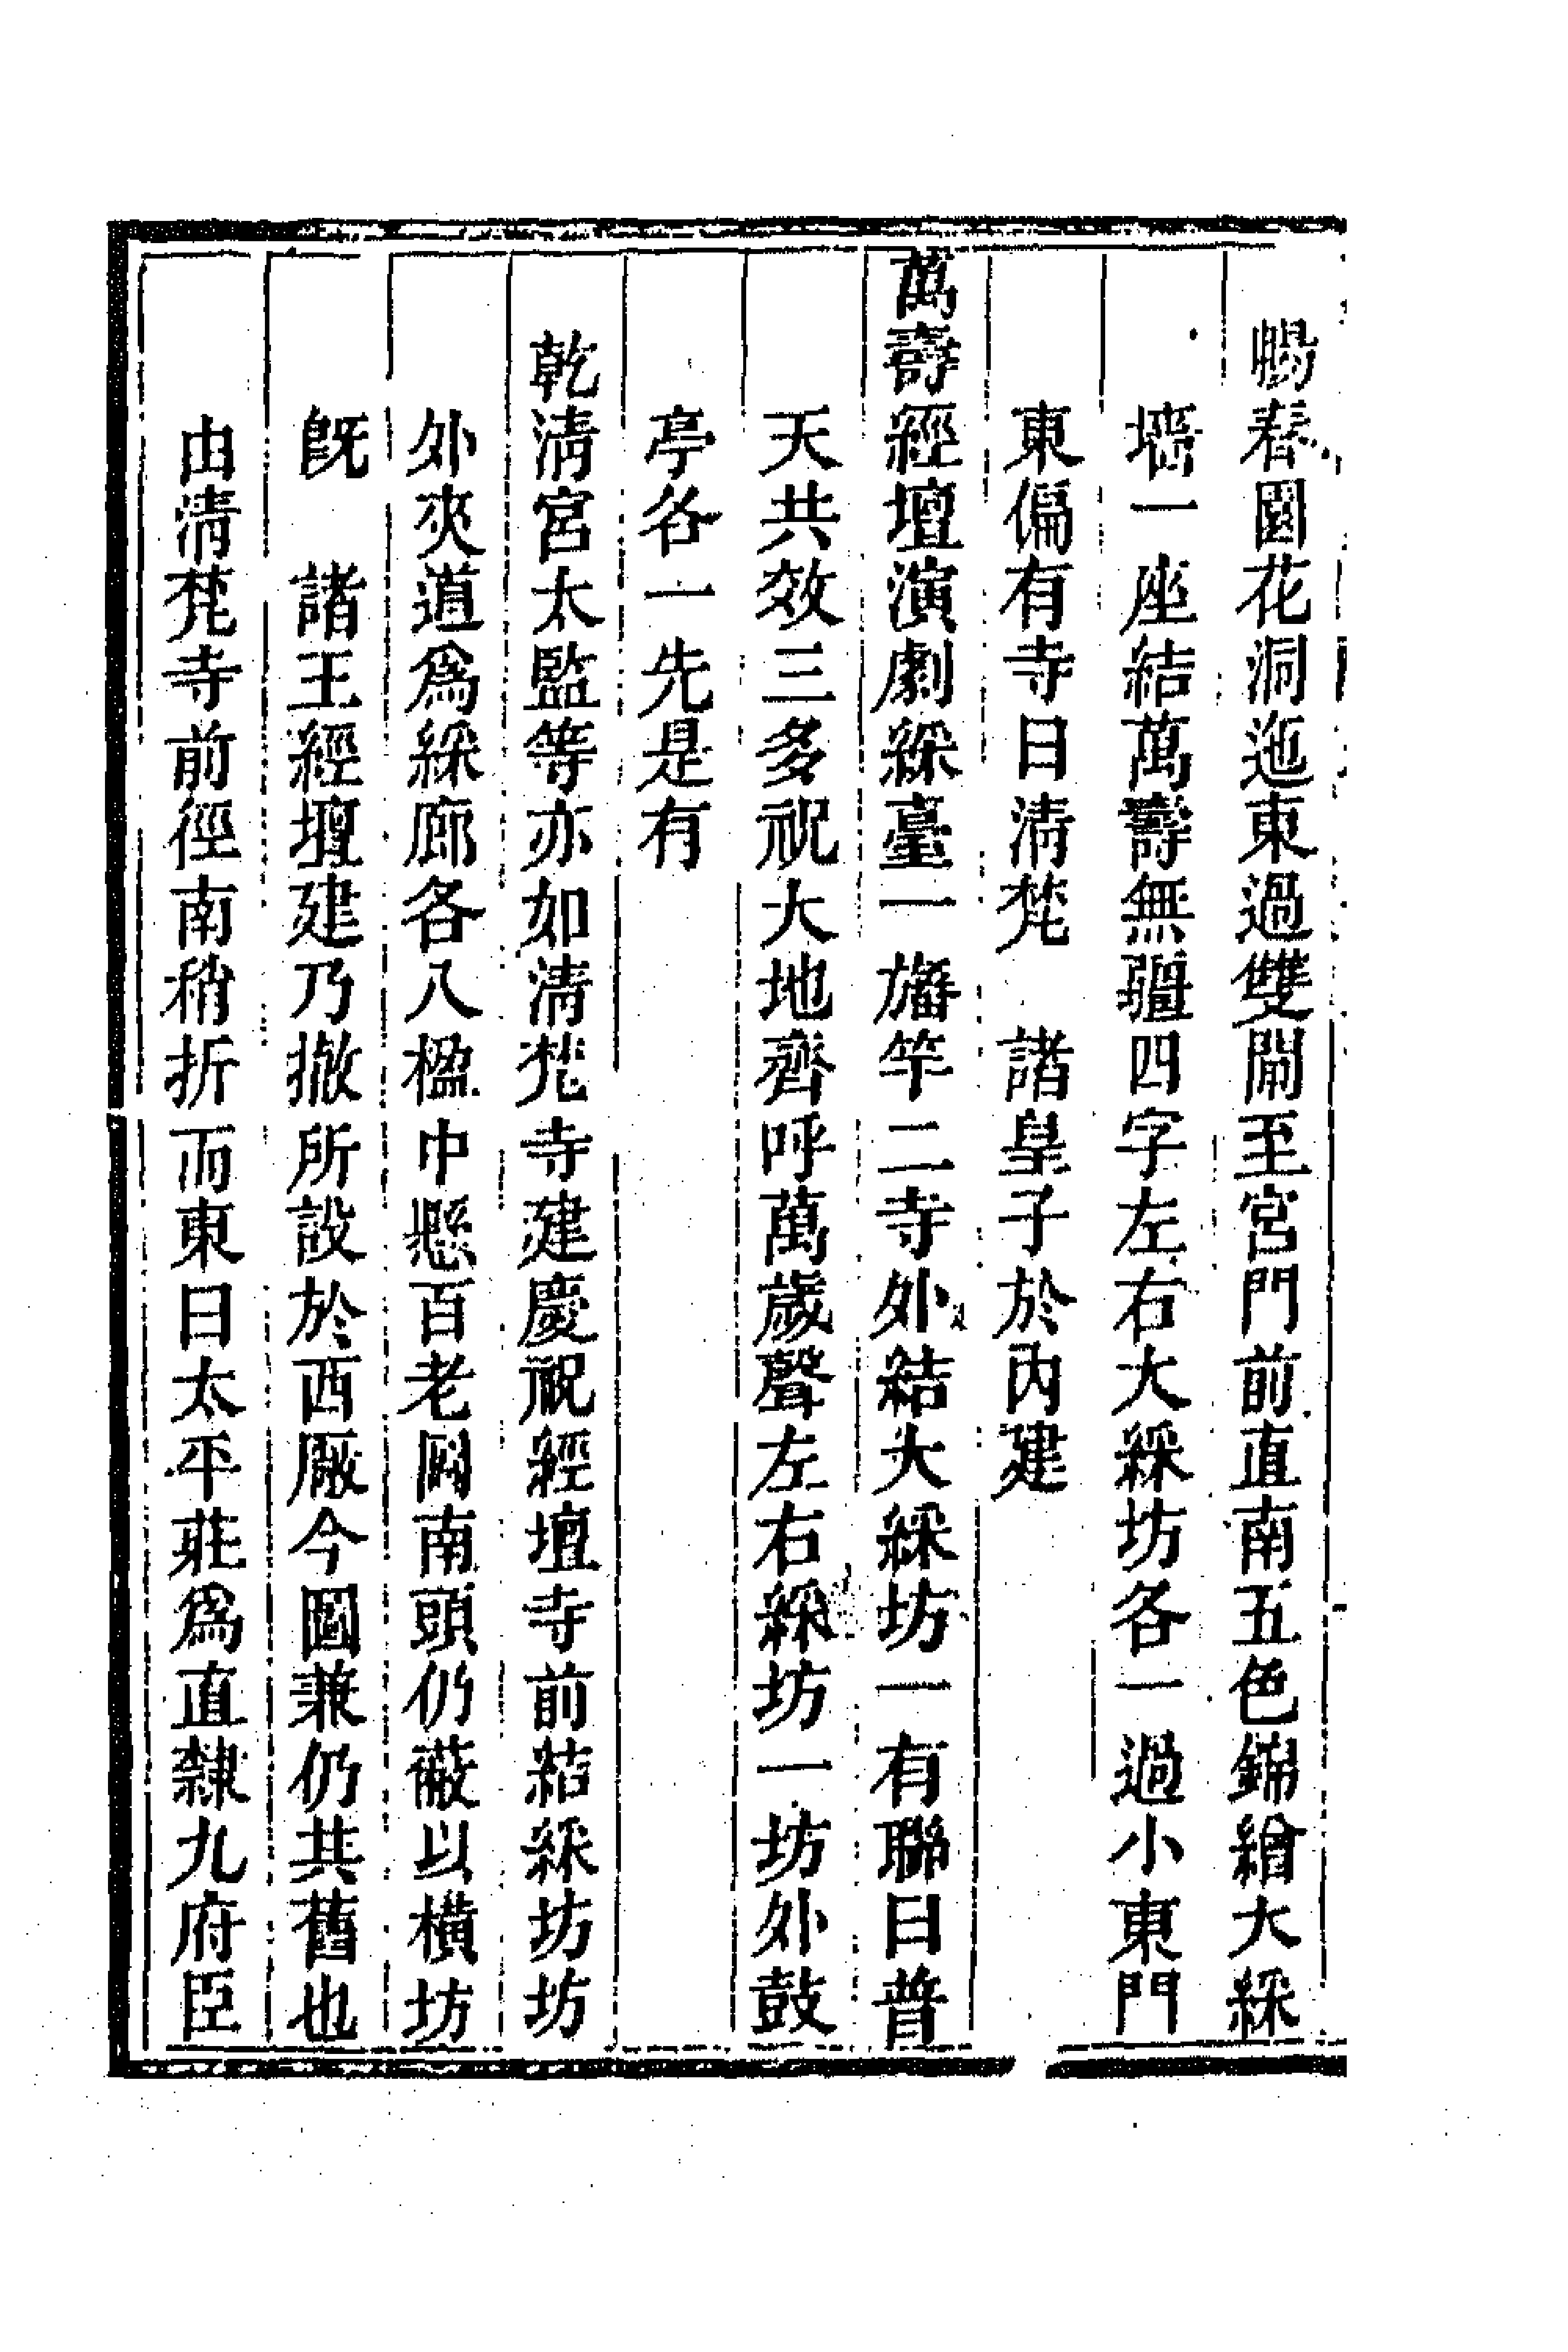 暢春園花洞迤東過雙閘至宮門前直南五色錦繒大綵
墻一座結萬壽無疆四字左右大綵坊各一過小東門
東偏有寺曰清梵　諸皇子於內建
萬壽經壇演劇綵臺一旛竿二寺外結大綵坊一有聯曰普
天共效三多祝大地齊呼萬歲聲左右綵坊一坊外鼓
亭各一先是有
乾清宮太監等亦如清梵寺建慶祝經壇寺前結綵坊坊
外夾道爲綵廊各八楹中懸百老圖南頭仍蔽以橫坊
旣　諸王經壇建乃撤所設於西厰今圖兼仍其舊也
由清梵寺前徑南稍折而東曰太平莊爲直隸九府臣